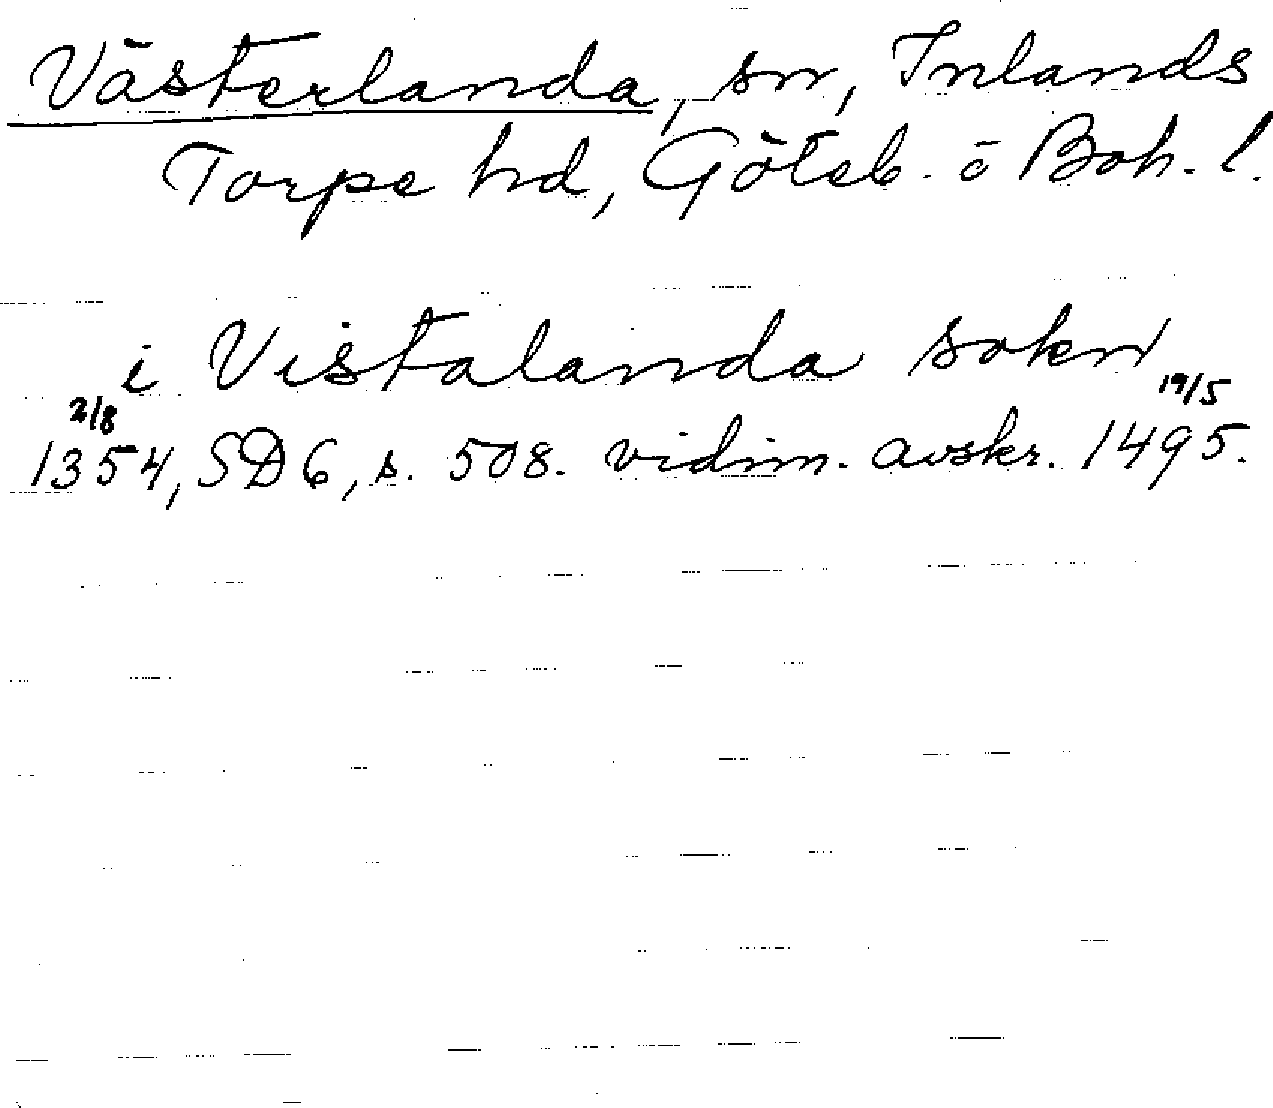 Västerlanda, sn, Inlands
Torpe hd, Göteb. o Boh. l.
i Vistalanda sokn
2/8 19/5
1354, SD 6, s. 508. vidim. avskr. 1495.